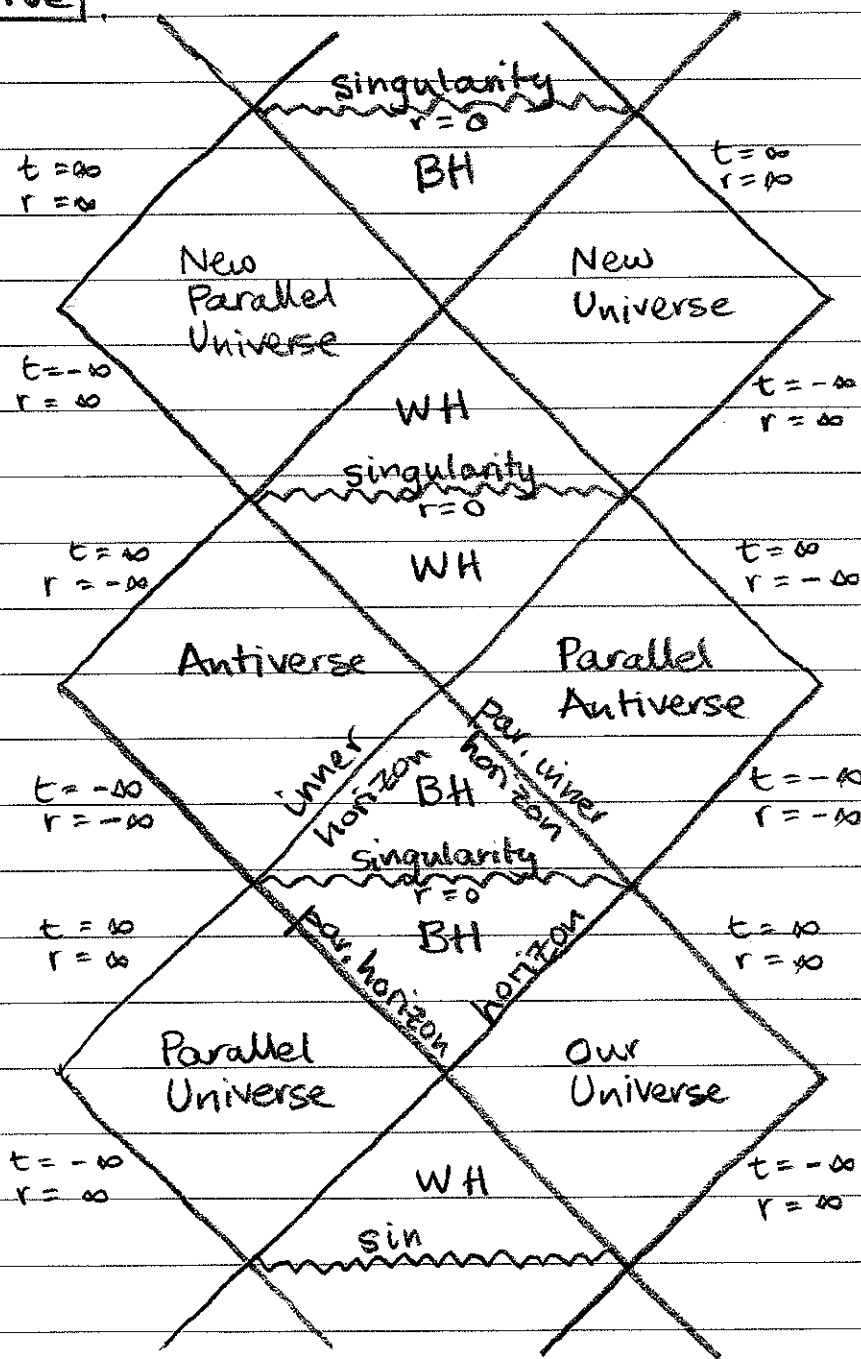 singularity
r = 0
BH
t = ∞
r = ∞
t = ∞
r = ∞
New
Parallel
Universe
New
Universe
t = -∞
r = ∞
t = -∞
r = ∞
WH
singularity
r = 0
WH
t = ∞
r = -∞
t = ∞
r = -∞
Antiverse
Parallel
Antiverse
inner
horizon
par. inner
horizon
BH
t = -∞
r = -∞
t = -∞
r = -∞
singularity
r = 0
BH
t = ∞
r = ∞
t = ∞
r = ∞
par. horizon
horizon
Parallel
Universe
Our
Universe
t = -∞
r = ∞
t = -∞
r = ∞
WH
sin